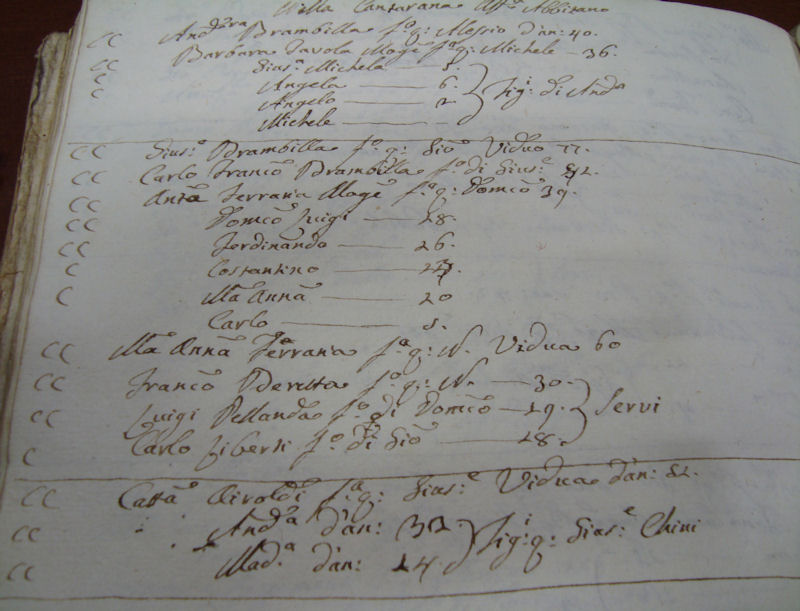 Villa Cantarana Aff.o Abbitano
CC And.a Brambilla f.o q: Alessio d'an: 40.
CC Barbara Tavola Mog.e f.a q: Michele - 36.
CC Gius.a Michela — 8.
C Angela — 6.
C Angelo — 2. Fig.i di And.a
Michele —
CC Gius.e Brambilla f.o q: Gio Viduo 77.
CC Carlo Franco Brambilla f.o di Gius.e 52.
CC Anta Ferraria Mog.e f.a q: Domco 39.
CC Domco Luigi — 28.
CC Ferdinando — 26.
C Costantino — 23.
C Ma Anna — 20
Carlo — 8.
CC Ma Anna Ferraria f.a q: N. Vidua 60
CC Franco Beretta f.o q: N. — 30.
CC Luigi Pellanda f.o di Domco — 29. Servi
C Carlo Liberti f.o di Gio — 28.
CC Catta Airoldi f.a q: Gius.e Vidua d'an: 52.
CC And.a d'an: 30 Fig.i q: Gius.e Chini
CC Mad.a d'an: 24.